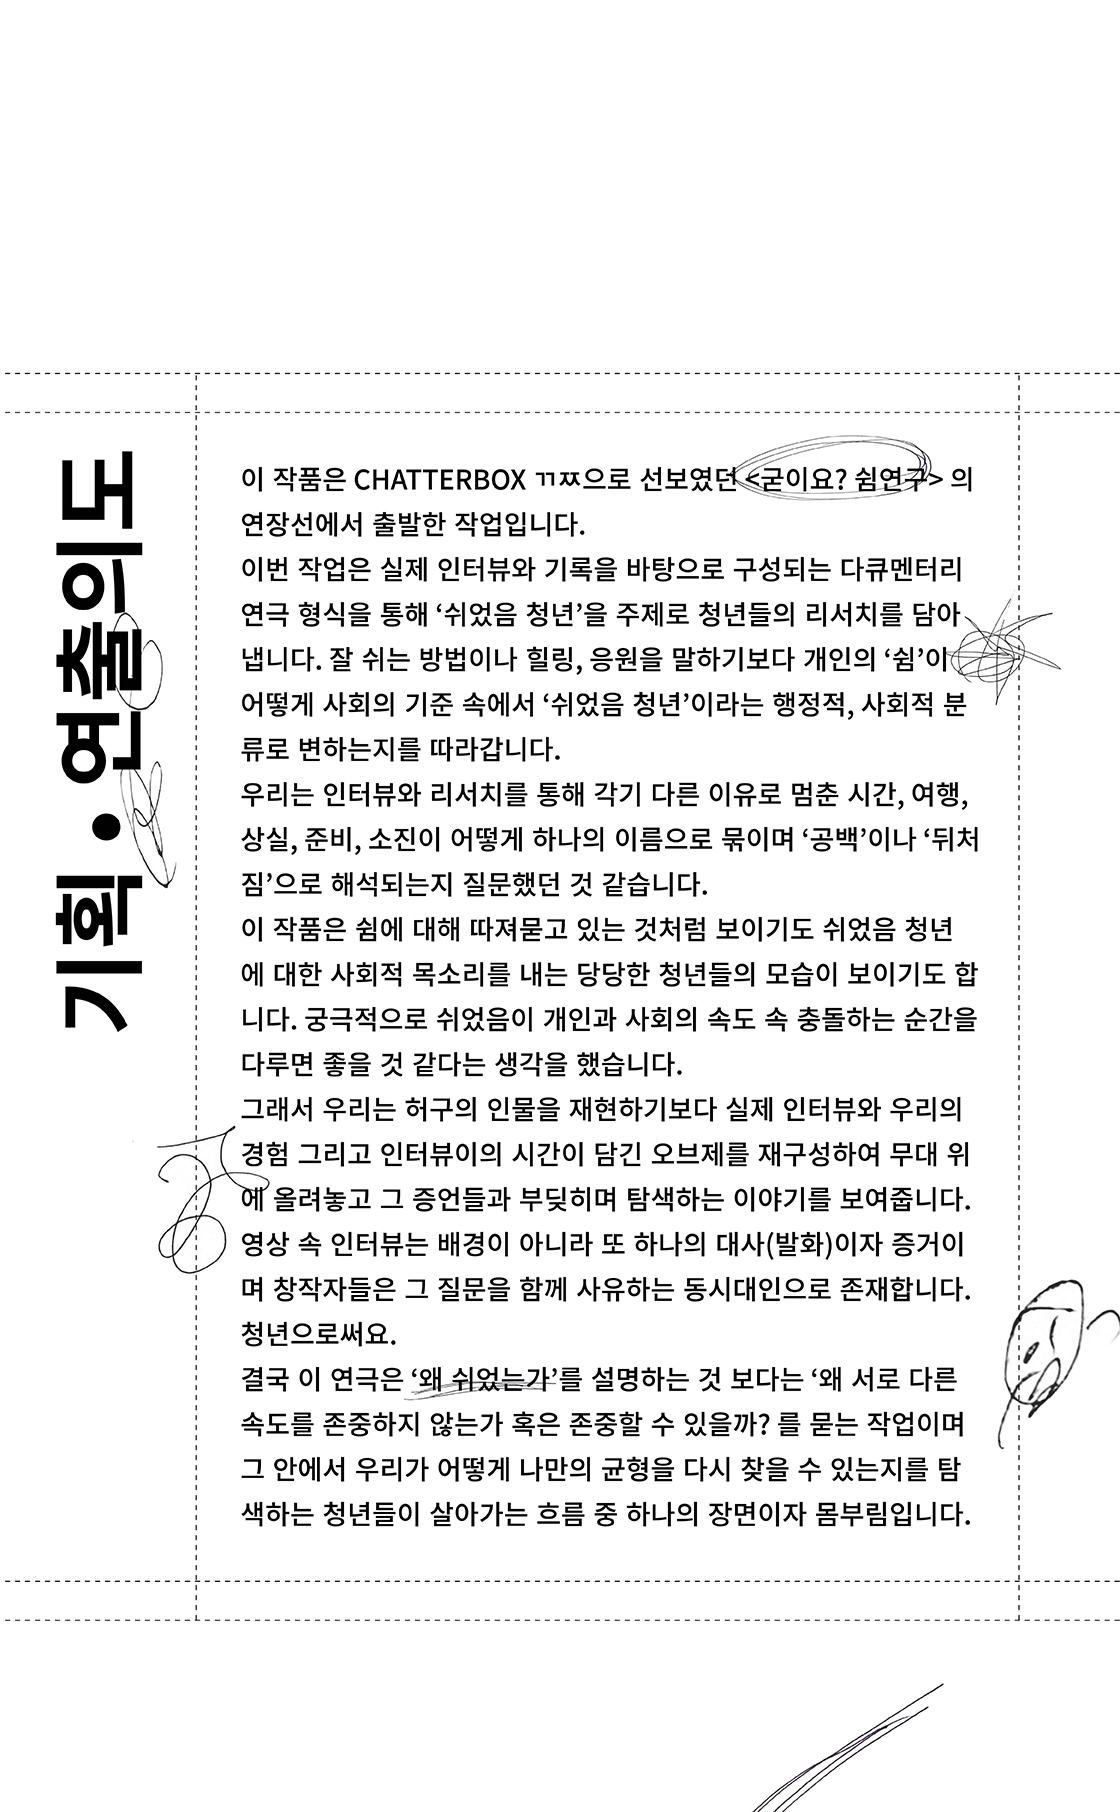 기획 · 연출의도
이 작품은 CHATTERBOX ㄲㅉ으로 선보였던 <굳이요? 쉼연구> 의
연장선에서 출발한 작업입니다.
이번 작업은 실제 인터뷰와 기록을 바탕으로 구성되는 다큐멘터리
연극 형식을 통해 ‘쉬었음 청년’을 주제로 청년들의 리서치를 담아
냅니다. 잘 쉬는 방법이나 힐링, 응원을 말하기보다 개인의 ‘쉼’이
어떻게 사회의 기준 속에서 ‘쉬었음 청년’이라는 행정적, 사회적 분
류로 변하는지를 따라갑니다.
우리는 인터뷰와 리서치를 통해 각기 다른 이유로 멈춘 시간, 여행,
상실, 준비, 소진이 어떻게 하나의 이름으로 묶이며 ‘공백’이나 ‘뒤처
짐’으로 해석되는지 질문했던 것 같습니다.
이 작품은 쉼에 대해 따져묻고 있는 것처럼 보이기도 쉬었음 청년
에 대한 사회적 목소리를 내는 당당한 청년들의 모습이 보이기도 합
니다. 궁극적으로 쉬었음이 개인과 사회의 속도 속 충돌하는 순간을
다루면 좋을 것 같다는 생각을 했습니다.
그래서 우리는 허구의 인물을 재현하기보다 실제 인터뷰와 우리의
경험 그리고 인터뷰이의 시간이 담긴 오브제를 재구성하여 무대 위
에 올려놓고 그 증언들과 부딪히며 탐색하는 이야기를 보여줍니다.
영상 속 인터뷰는 배경이 아니라 또 하나의 대사(발화)이자 증거이
며 창작자들은 그 질문을 함께 사유하는 동시대인으로 존재합니다.
청년으로써요.
결국 이 연극은 ‘왜 쉬었는가’를 설명하는 것 보다는 ‘왜 서로 다른
속도를 존중하지 않는가 혹은 존중할 수 있을까? 를 묻는 작업이며
그 안에서 우리가 어떻게 나만의 균형을 다시 찾을 수 있는지를 탐
색하는 청년들이 살아가는 흐름 중 하나의 장면이자 몸부림입니다.